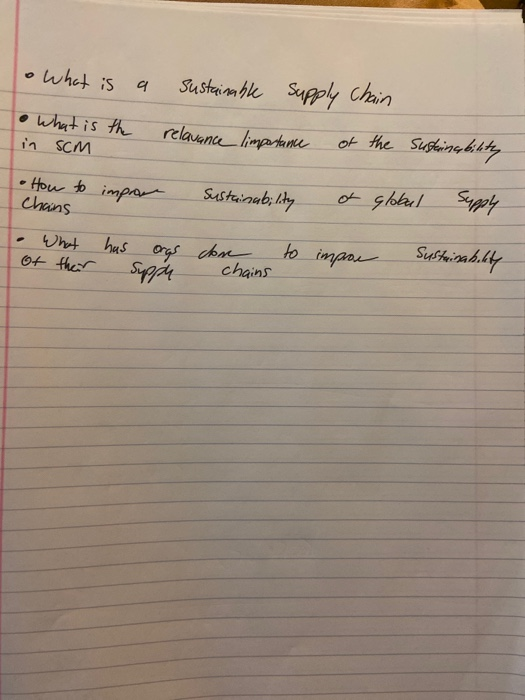 • What is a sustainable supply chain
• What is the relavance/importance of the sustainability
in SCM
• How to improve sustainability of global supply
chains
• What has orgs done to improve sustainability
of their supply chains